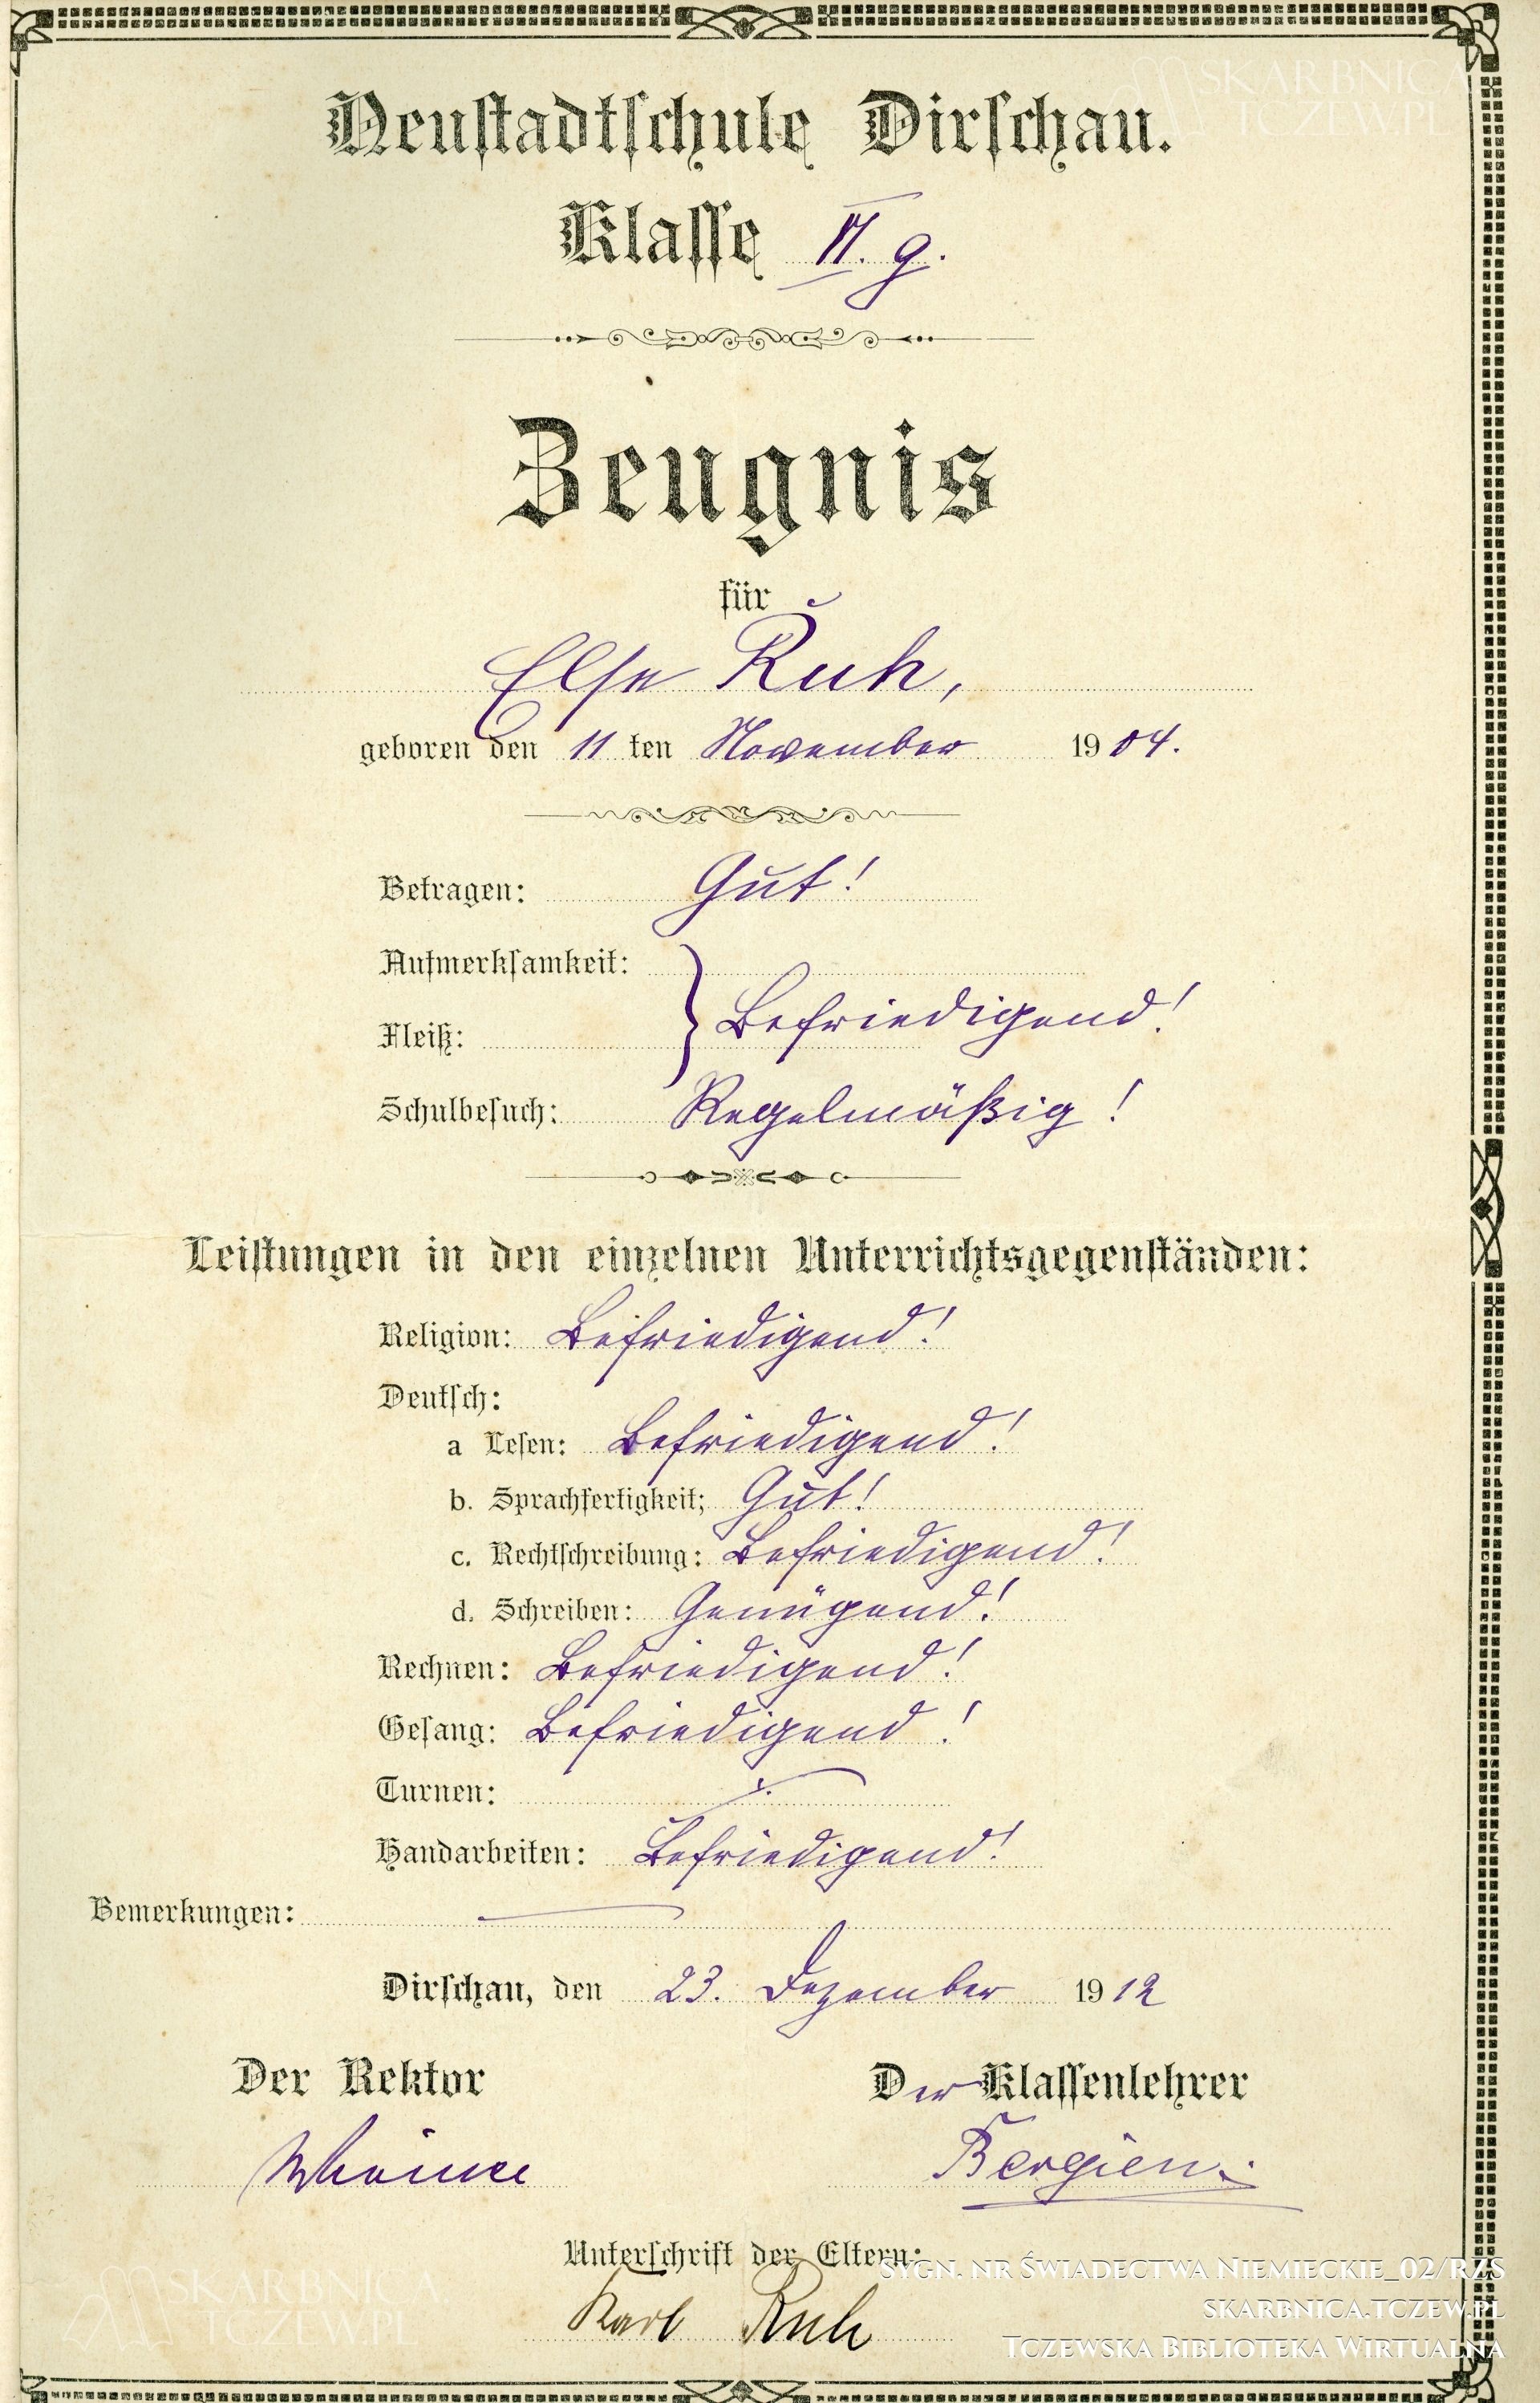 Neustadtschule Dirschau.
Klasse VI. g.
Zeugnis
für
Else Ruh,
geboren den 11 ten November 1904.
Betragen: Gut!
Aufmerksamkeit:
Fleiß: } Befriedigend!
Schulbesuch: Regelmäßig!
Leistungen in den einzelnen Unterrichtsgegenständen:
Religion: Befriedigend!
Deutsch:
a Lesen: Befriedigend!
b. Sprachfertigkeit; Gut!
c. Rechtschreibung: Befriedigend!
d. Schreiben: Genügend!
Rechnen: Befriedigend!
Gesang: Befriedigend!
Turnen: ·/.
Handarbeiten: Befriedigend!
Bemerkungen: —
Dirschau, den 23. Dezember 1912
Der Rektor Der Klassenlehrer
Bergien.
Unterschrift der Eltern:
Karl Ruh
SKARBNICA.
TCZEW.PL
SKARBNICA.
TCZEW.PL
SYGN. NR ŚWIADECTWA NIEMIECKIE_02/RZS
SKARBNICA.TCZEW.PL
TCZEWSKA BIBLIOTEKA WIRTUALNA